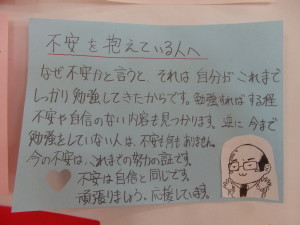 不安を抱えている人へ
なぜ不安かと言うと、それは自分がこれまで
しっかり勉強してきたからです。勉強すればする程
不安や自信のない内容は見つかります。逆に今まで
勉強をしていない人は、不安も何もありません。
今の不安は、これまでの努力の証です。
不安は自信と同じです。
頑張りましょう。応援しています。